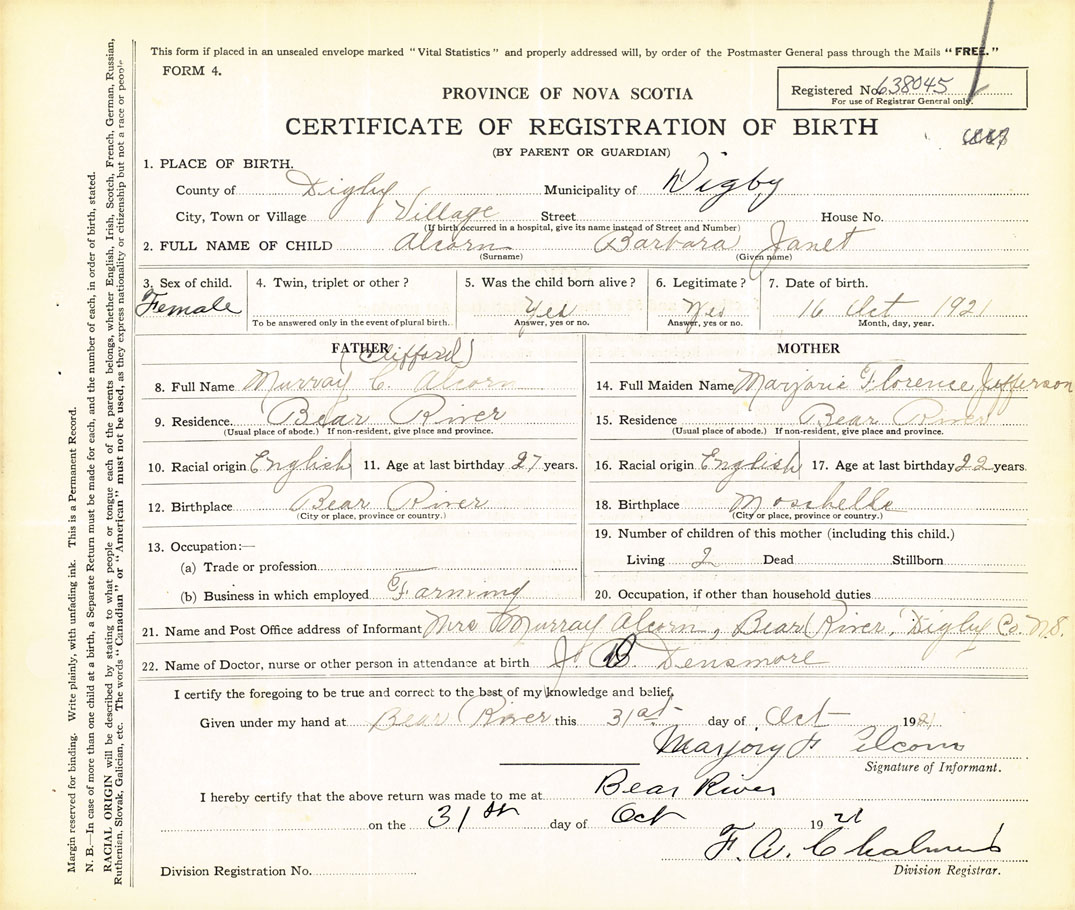 This form if placed in an unsealed envelope marked "Vital Statistics" and properly addressed will, by order of the Postmaster General pass through the Mails "FREE."
FORM 4.
Registered No. 638045
For use of Registrar General only.
PROVINCE OF NOVA SCOTIA
CERTIFICATE OF REGISTRATION OF BIRTH
(BY PARENT OR GUARDIAN)
1. PLACE OF BIRTH.
County of Digby Municipality of Digby
City, Town or Village Village Street House No.
(If birth occurred in a hospital, give its name instead of Street and Number)
2. FULL NAME OF CHILD Alcorn Barbara Janet
(Surname) (Given name)
3. Sex of child. 4. Twin, triplet or other? 5. Was the child born alive? 6. Legitimate? 7. Date of birth.
Female Yes Yes 16 Oct 1921
To be answered only in the event of plural birth. Answer, yes or no. Answer, yes or no. Month, day, year.
FATHER
(Clifford)
8. Full Name Murray C. Alcorn
9. Residence. Bear River
(Usual place of abode.) If non-resident, give place and province.
10. Racial origin English 11. Age at last birthday 27 years.
12. Birthplace Bear River
(City or place, province or country.)
13. Occupation:—
(a) Trade or profession
(b) Business in which employed Farming
MOTHER
14. Full Maiden Name Marjorie Florence Jefferson
15. Residence Bear River
(Usual place of abode.) If non-resident, give place and province.
16. Racial origin English 17. Age at last birthday 22 years.
18. Birthplace Moschelle
(City or place, province or country.)
19. Number of children of this mother (including this child.)
Living 2 Dead Stillborn
20. Occupation, if other than household duties
21. Name and Post Office address of Informant Mrs Murray Alcorn, Bear River, Digby Co. N.S.
22. Name of Doctor, nurse or other person in attendance at birth J. B. Densmore
I certify the foregoing to be true and correct to the best of my knowledge and belief.
Given under my hand at Bear River this 31st day of Oct 1921
Marjory F Alcorn
Signature of Informant.
I hereby certify that the above return was made to me at Bear River
on the 31st day of Oct 1921
F. W. Chalmers
Division Registration No. Division Registrar.
Margin reserved for binding. Write plainly, with unfading ink. This is a Permanent Record.
N. B.—In case of more than one child at birth, a Separate Return must be made for each, and the number of each, in order of birth, stated.
RACIAL ORIGIN will be described by stating to what people or tongue each of the parents belongs, whether English, Irish, Scotch, French, German, Russian,
Ruthenian, Slovak, Galician, etc. The words "Canadian" or "American" must not be used, as they express nationality or citizenship but not a race or people